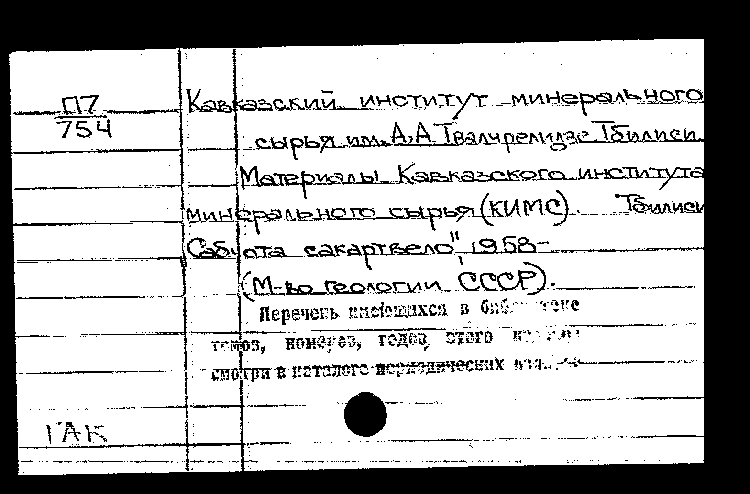 П7
754
Кавказский институт минерального
сырья им. А.А Твалчрелидзе Тбилиси.
Материалы Кавказского института
минерального сырья (КИМС). Тбилиси
Сабчота сакартвело", 1958-
(М-во геологии СССР).
Перечень имеющихся в библиотеке
томов, номеров, годов этого
смотри в каталоге периодических
ГАК